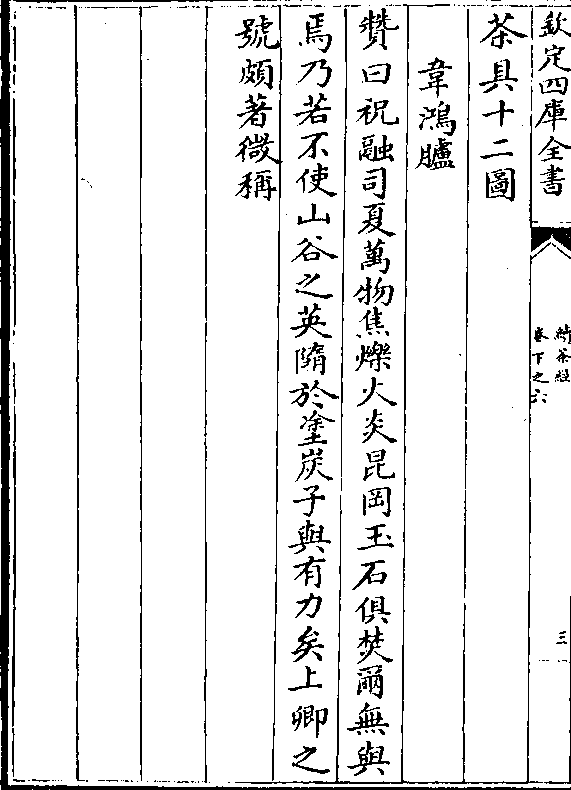 欽定四庫全書
續茶經
卷下之六
三
茶具十二圖
韋鴻臚
贊曰祝融司夏萬物焦爍火炎昆岡玉石俱焚爾無與
焉乃若不使山谷之英隋於塗炭子與有力矣上卿之
號頗著微稱